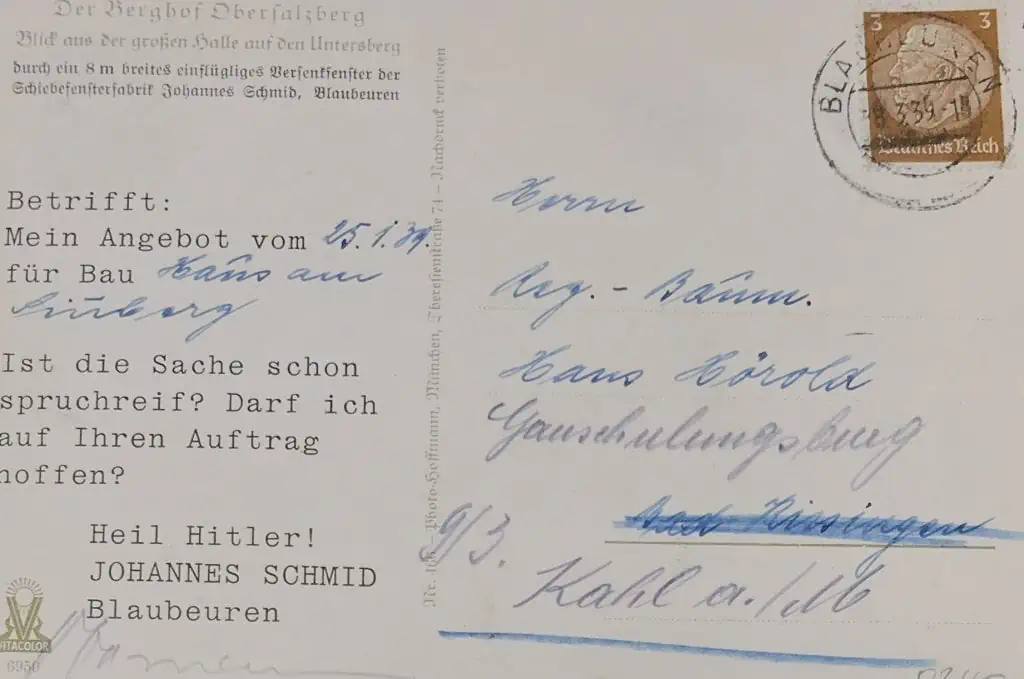 Der Berghof Obersalzberg
Blick aus der großen Halle auf den Untersberg
durch ein 8 m breites einflügliges Versenkfenster der
Schiebefensterfabrik Johannes Schmid, Blaubeuren
Betrifft:
Mein Angebot vom 25.1.39.
für Bau Haus am
Ist die Sache schon
spruchreif? Darf ich
auf Ihren Auftrag
hoffen?
Heil Hitler!
JOHANNES SCHMID
Blaubeuren
VITACOLOR
6950
Photo-Hoffmann, München, Theresienstraße 74 – Nachdruck verboten
3 3
Deutsches Reich
BLAUBEUREN
Herrn
Reg.-Baum.
Hans Hörold
Gauschulungsburg
Bad Kissingen
9/3.
Kahl a./M